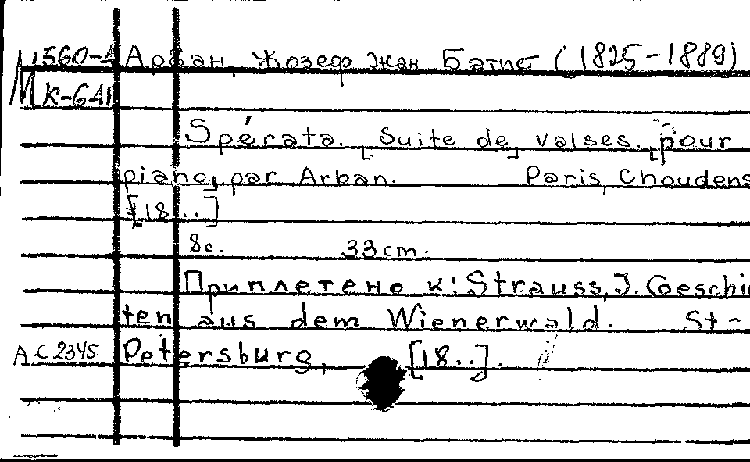 М 1560-4 Арбан, Жозеф Жан Батист (1825-1889)
К-641
Spérata. Suite de valses pour
piano, par Arban. Paris, Choudens
[18..]
8с. 33cm.
Приплетено к: Strauss, J. Geschi
ten aus dem Wienerwald. St-
АС 2345 Petersburg, [18..].